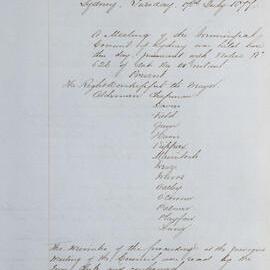 Sydney, Tuesday, 17th July 1877.
A Meeting of the Municipal
Council of Sydney was held here
this day, pursuant with Notice No
626 of date the
Present
The Right Worshipful the Mayor
Aldermen Chapman
Davies
Field
Green
Moore
McIntosh
Merriman
Withers
O'Connor
Palmer
Playfair
Young
The Minutes of the proceedings at the previous
Meeting of the Council were read by the
Town Clerk and confirmed